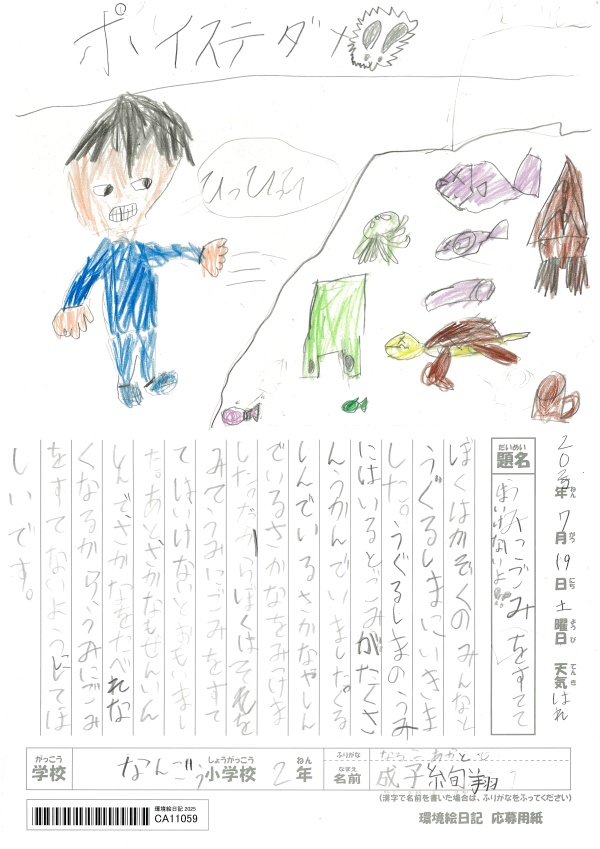 ポイステダメ
ひっひひい
2025年 7月 19日 土曜日 天気 はれ
ねん がつ にち ようび てんき
だいめい
題名
うみにごみをすてて
はいけないよ!!
ぼくはかぞくのみんなと
うぐるしまにいきま
した。うぐるしまのうみ
にはいるとごみがたくさ
んうかんでいました。くる
しんでいるさかなやしん
でいるさかなをみつけま
した。だからぼくはそれを
みてうみにごみをすて
てはいけないとおもいまし
た。あとさかなもぜんいん
しんで、さかなをたべれな
くなるからうみにごみ
をすてないようにしてほ
しいです。
がっこう しょうがっこう ねん ふりがな
学校 なんごう小学校 2年
なまえ
名前 成子絢翔
(漢字で名前を書いた場合は、ふりがなをふってください)
環境絵日記 2025
CA11059
環境絵日記 応募用紙